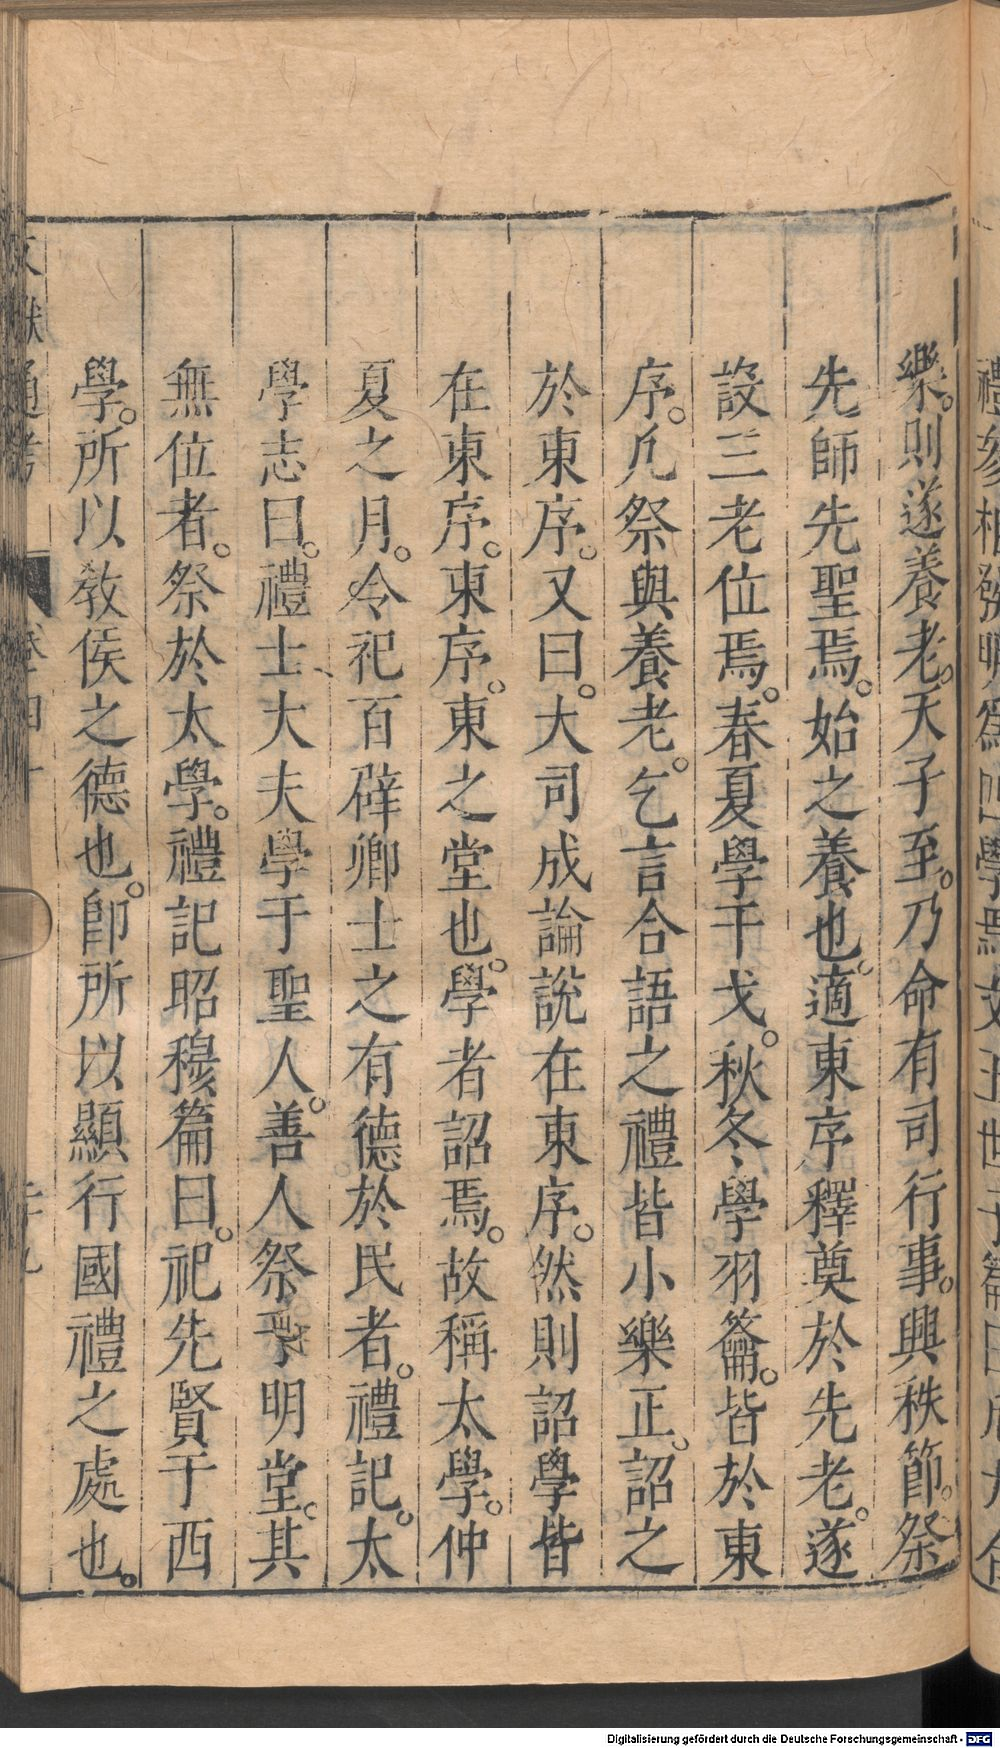 樂。則遂養老。天子至。乃命有司行事。興秩節。祭
先師先聖焉。始之養也。適東序釋奠於先老。遂
設三老位焉。春夏學干戈。秋冬學羽籥。皆於東
序。凡祭與養老。乞言合語之禮皆小樂正。詔之
於東序。又曰。大司成論說在東序。然則詔學皆
在東序。東序。東之堂也。學者詔焉。故稱太學。仲
夏之月。令祀百辟卿士之有德於民者。禮記。太
學志曰。禮士大夫學于聖人。善人祭乎明堂。其
無位者。祭於太學。禮記昭穆篇曰。祀先賢于西
學。所以敎侯之德也。卽所以顯行國禮之處也。
通考
Digitalisierung gefördert durch die Deutsche Forschungsgemeinschaft - DFG